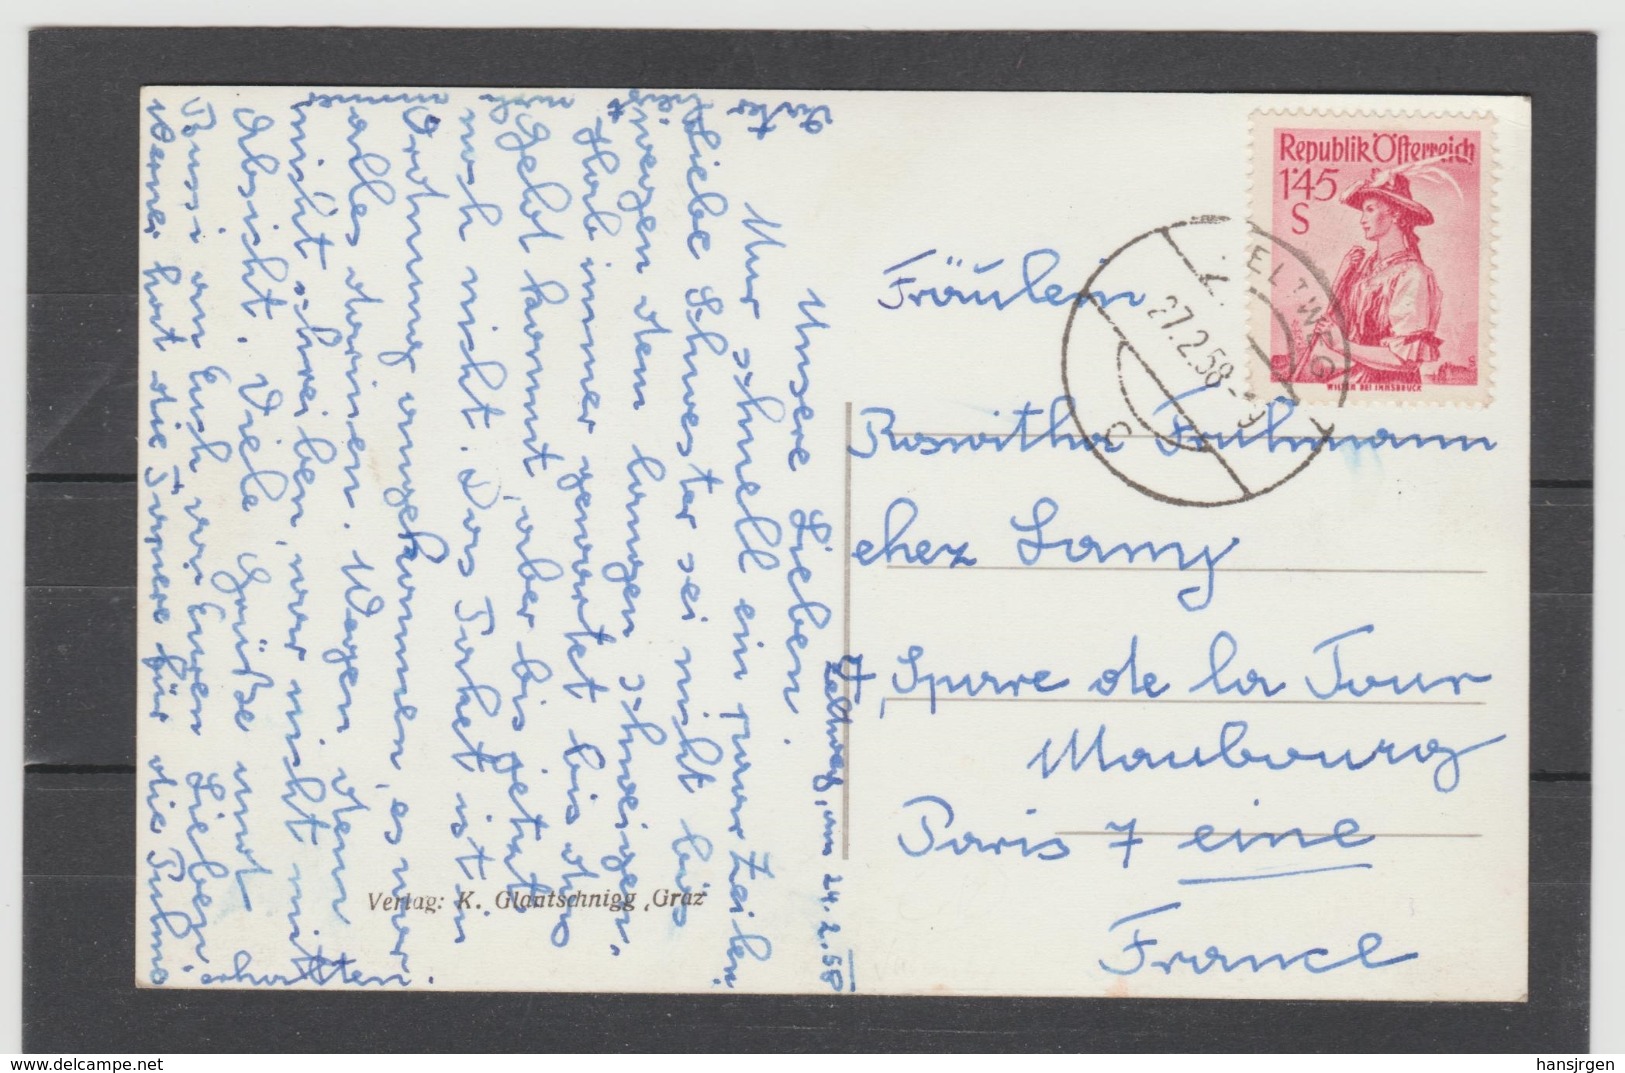 Zeltweg, am 24.2.58
Unsere Lieben.
Nur schnell ein paar Zeilen
Liebe Schwester sei nicht bös
wegen dem langen schweigen.
Hab immer gewartet bis das
Gelt kommt, aber bis jetzt
noch nicht. Das Paket ist in
Ordnung angekommen, es war
alles darinen. Wegen dem
nicht schreiben, war nicht mit
Absicht. Viele Grüße und
Bussi an Euch von Euren Lieben.
Werner hat die Papiere für die
erhalten.
Vater
immer
Verlag: K. Glantschnigg, Graz
Republik Österreich
1'45
S
WILTEN BEI INNSBRUCK
ZELTWEG
27.2.58-9
Fräulein
Roswitha Fuhrmann
chez Lamy
7, Spuare de la Tour
Maubourg
Paris 7 eine
France
hansjrgen